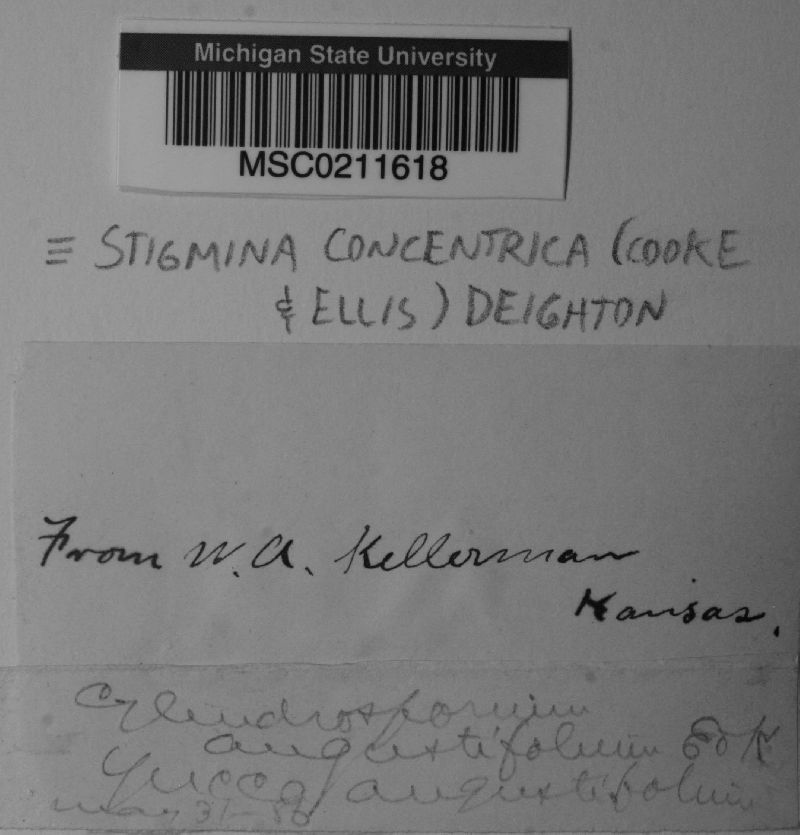 Michigan State University
MSC0211618
≡ STIGMINA CONCENTRICA (COOKE
& ELLIS) DEIGHTON
From W. A. Kellerman
Kansas.
Cylindrosporium
angustifolium E & K
Yucca angustifolium
May 31 - 86